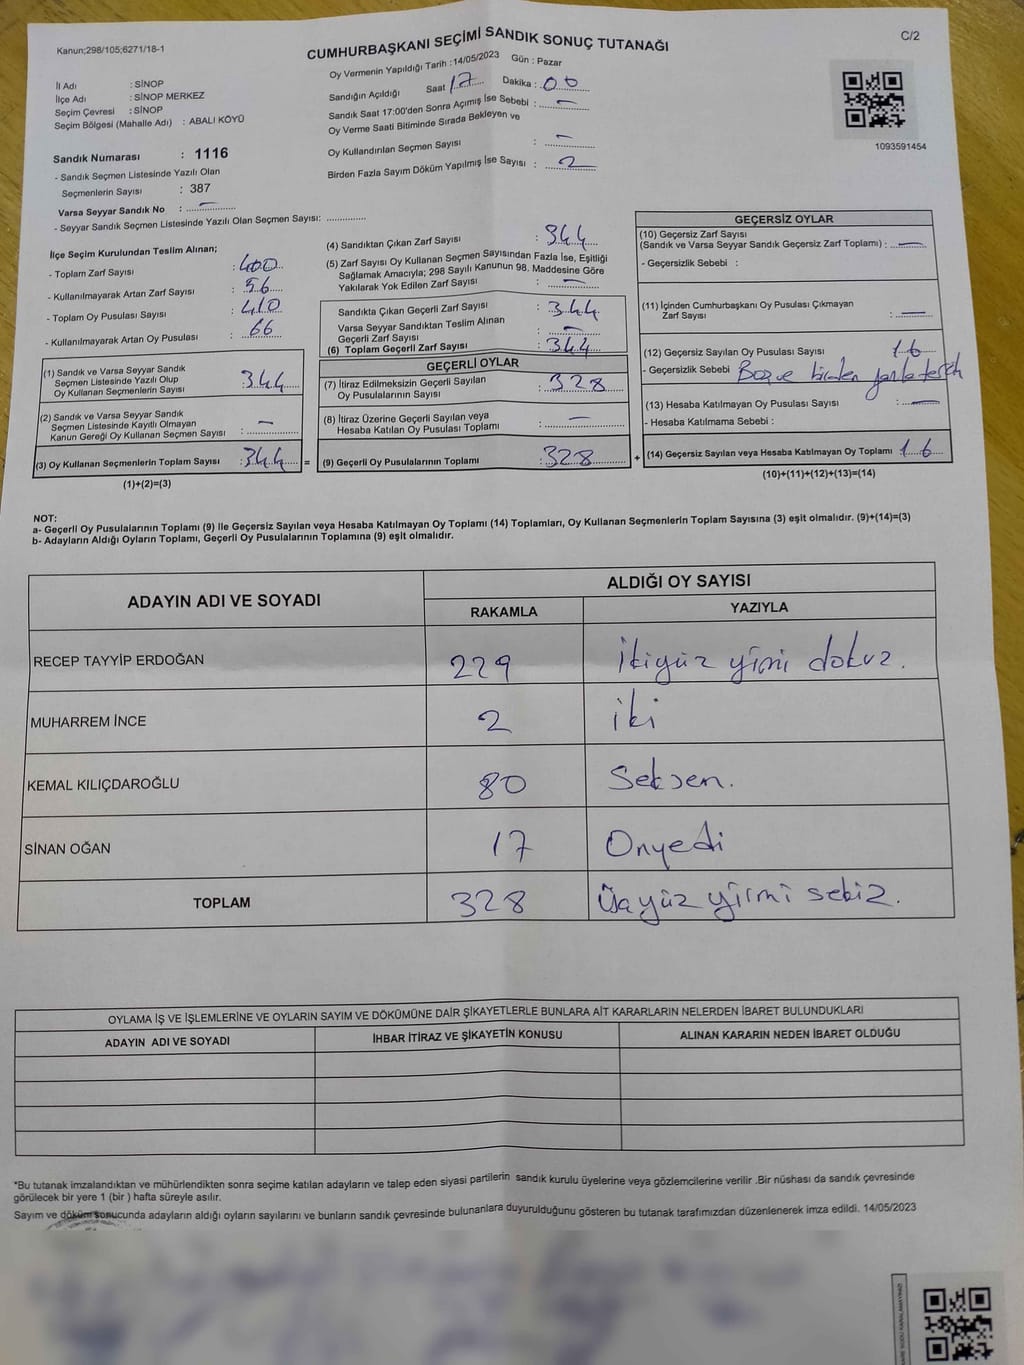 Kanun;298/105;6271/18-1
C/2
CUMHURBAŞKANI SEÇİMİ SANDIK SONUÇ TUTANAĞI
İl Adı : SİNOP
İlçe Adı : SİNOP MERKEZ
Seçim Çevresi : SİNOP
Seçim Bölgesi (Mahalle Adı) : ABALI KÖYÜ
Oy Vermenin Yapıldığı Tarih :14/05/2023 Gün : Pazar
Sandığın Açıldığı Saat 17 Dakika : 00
Sandık Saat 17:00'den Sonra Açımış İse Sebebi : —
Oy Verme Saati Bitiminde Sırada Bekleyen ve
Oy Kullandırılan Seçmen Sayısı : —
Birden Fazla Sayım Döküm Yapılmış İse Sayısı : 2
1093591454
Sandık Numarası : 1116
- Sandık Seçmen Listesinde Yazılı Olan
Seçmenlerin Sayısı : 387
Varsa Seyyar Sandık No : —
- Seyyar Sandık Seçmen Listesinde Yazılı Olan Seçmen Sayısı: ...............
İlçe Seçim Kurulundan Teslim Alınan;
- Toplam Zarf Sayısı : 400
- Kullanılmayarak Artan Zarf Sayısı : 56
- Toplam Oy Pusulası Sayısı : 410
- Kullanılmayarak Artan Oy Pusulası : 66
(1) Sandık ve Varsa Seyyar Sandık
Seçmen Listesinde Yazılı Olup
Oy Kullanan Seçmenlerin Sayısı : 344
(2) Sandık ve Varsa Seyyar Sandık
Seçmen Listesinde Kayıtlı Olmayan
Kanun Gereği Oy Kullanan Seçmen Sayısı : —
(3) Oy Kullanan Seçmenlerin Toplam Sayısı : 344 =
(1)+(2)=(3)
(4) Sandıktan Çıkan Zarf Sayısı : 344
(5) Zarf Sayısı Oy Kullanan Seçmen Sayısından Fazla İse, Eşitliği
Sağlamak Amacıyla; 298 Sayılı Kanunun 98. Maddesine Göre
Yakılarak Yok Edilen Zarf Sayısı : —
Sandıkta Çıkan Geçerli Zarf Sayısı : 344
Varsa Seyyar Sandıktan Teslim Alınan
Geçerli Zarf Sayısı : —
(6) Toplam Geçerli Zarf Sayısı : 344
GEÇERLİ OYLAR
(7) İtiraz Edilmeksizin Geçerli Sayılan
Oy Pusulalarının Sayısı : 328
(8) İtiraz Üzerine Geçerli Sayılan veya
Hesaba Katılan Oy Pusulası Toplamı : —
(9) Geçerli Oy Pusulalarının Toplamı : 328 +
GEÇERSİZ OYLAR
(10) Geçersiz Zarf Sayısı
(Sandık ve Varsa Seyyar Sandık Geçersiz Zarf Toplamı) : —
- Geçersizlik Sebebi :
(11) İçinden Cumhurbaşkanı Oy Pusulası Çıkmayan
Zarf Sayısı : —
(12) Geçersiz Sayılan Oy Pusulası Sayısı 16
- Geçersizlik Sebebi Boş ve birden fazla tercih
(13) Hesaba Katılmayan Oy Pusulası Sayısı : —
- Hesaba Katılmama Sebebi :
(14) Geçersiz Sayılan veya Hesaba Katılmayan Oy Toplamı 16
(10)+(11)+(12)+(13)=(14)
NOT:
a- Geçerli Oy Pusulalarının Toplamı (9) ile Geçersiz Sayılan veya Hesaba Katılmayan Oy Toplamı (14) Toplamları, Oy Kullanan Seçmenlerin Toplam Sayısına (3) eşit olmalıdır. (9)+(14)=(3)
b- Adayların Aldığı Oyların Toplamı, Geçerli Oy Pusulalarının Toplamına (9) eşit olmalıdır.
ADAYIN ADI VE SOYADI
ALDIĞI OY SAYISI
RAKAMLA YAZIYLA
RECEP TAYYİP ERDOĞAN 229 İkiyüz yirmi dokuz.
MUHARREM İNCE 2 İki
KEMAL KILIÇDAROĞLU 80 Seksen.
SİNAN OĞAN 17 Onyedi
TOPLAM 328 Üçyüz yirmi sekiz.
OYLAMA İŞ VE İŞLEMLERİNE VE OYLARIN SAYIM VE DÖKÜMÜNE DAİR ŞİKAYETLERLE BUNLARA AİT KARARLARIN NELERDEN İBARET BULUNDUKLARI
ADAYIN ADI VE SOYADI İHBAR İTİRAZ VE ŞİKAYETİN KONUSU ALINAN KARARIN NEDEN İBARET OLDUĞU
*Bu tutanak imzalandıktan ve mühürlendikten sonra seçime katılan adayların ve talep eden siyasi partilerin sandık kurulu üyelerine veya gözlemcilerine verilir .Bir nüshası da sandık çevresinde
görülecek bir yere 1 (bir ) hafta süreyle asılır.
Sayım ve döküm sonucunda adayların aldığı oyların sayılarını ve bunların sandık çevresinde bulunanlara duyurulduğunu gösteren bu tutanak tarafımızdan düzenlenerek imza edildi. 14/05/2023